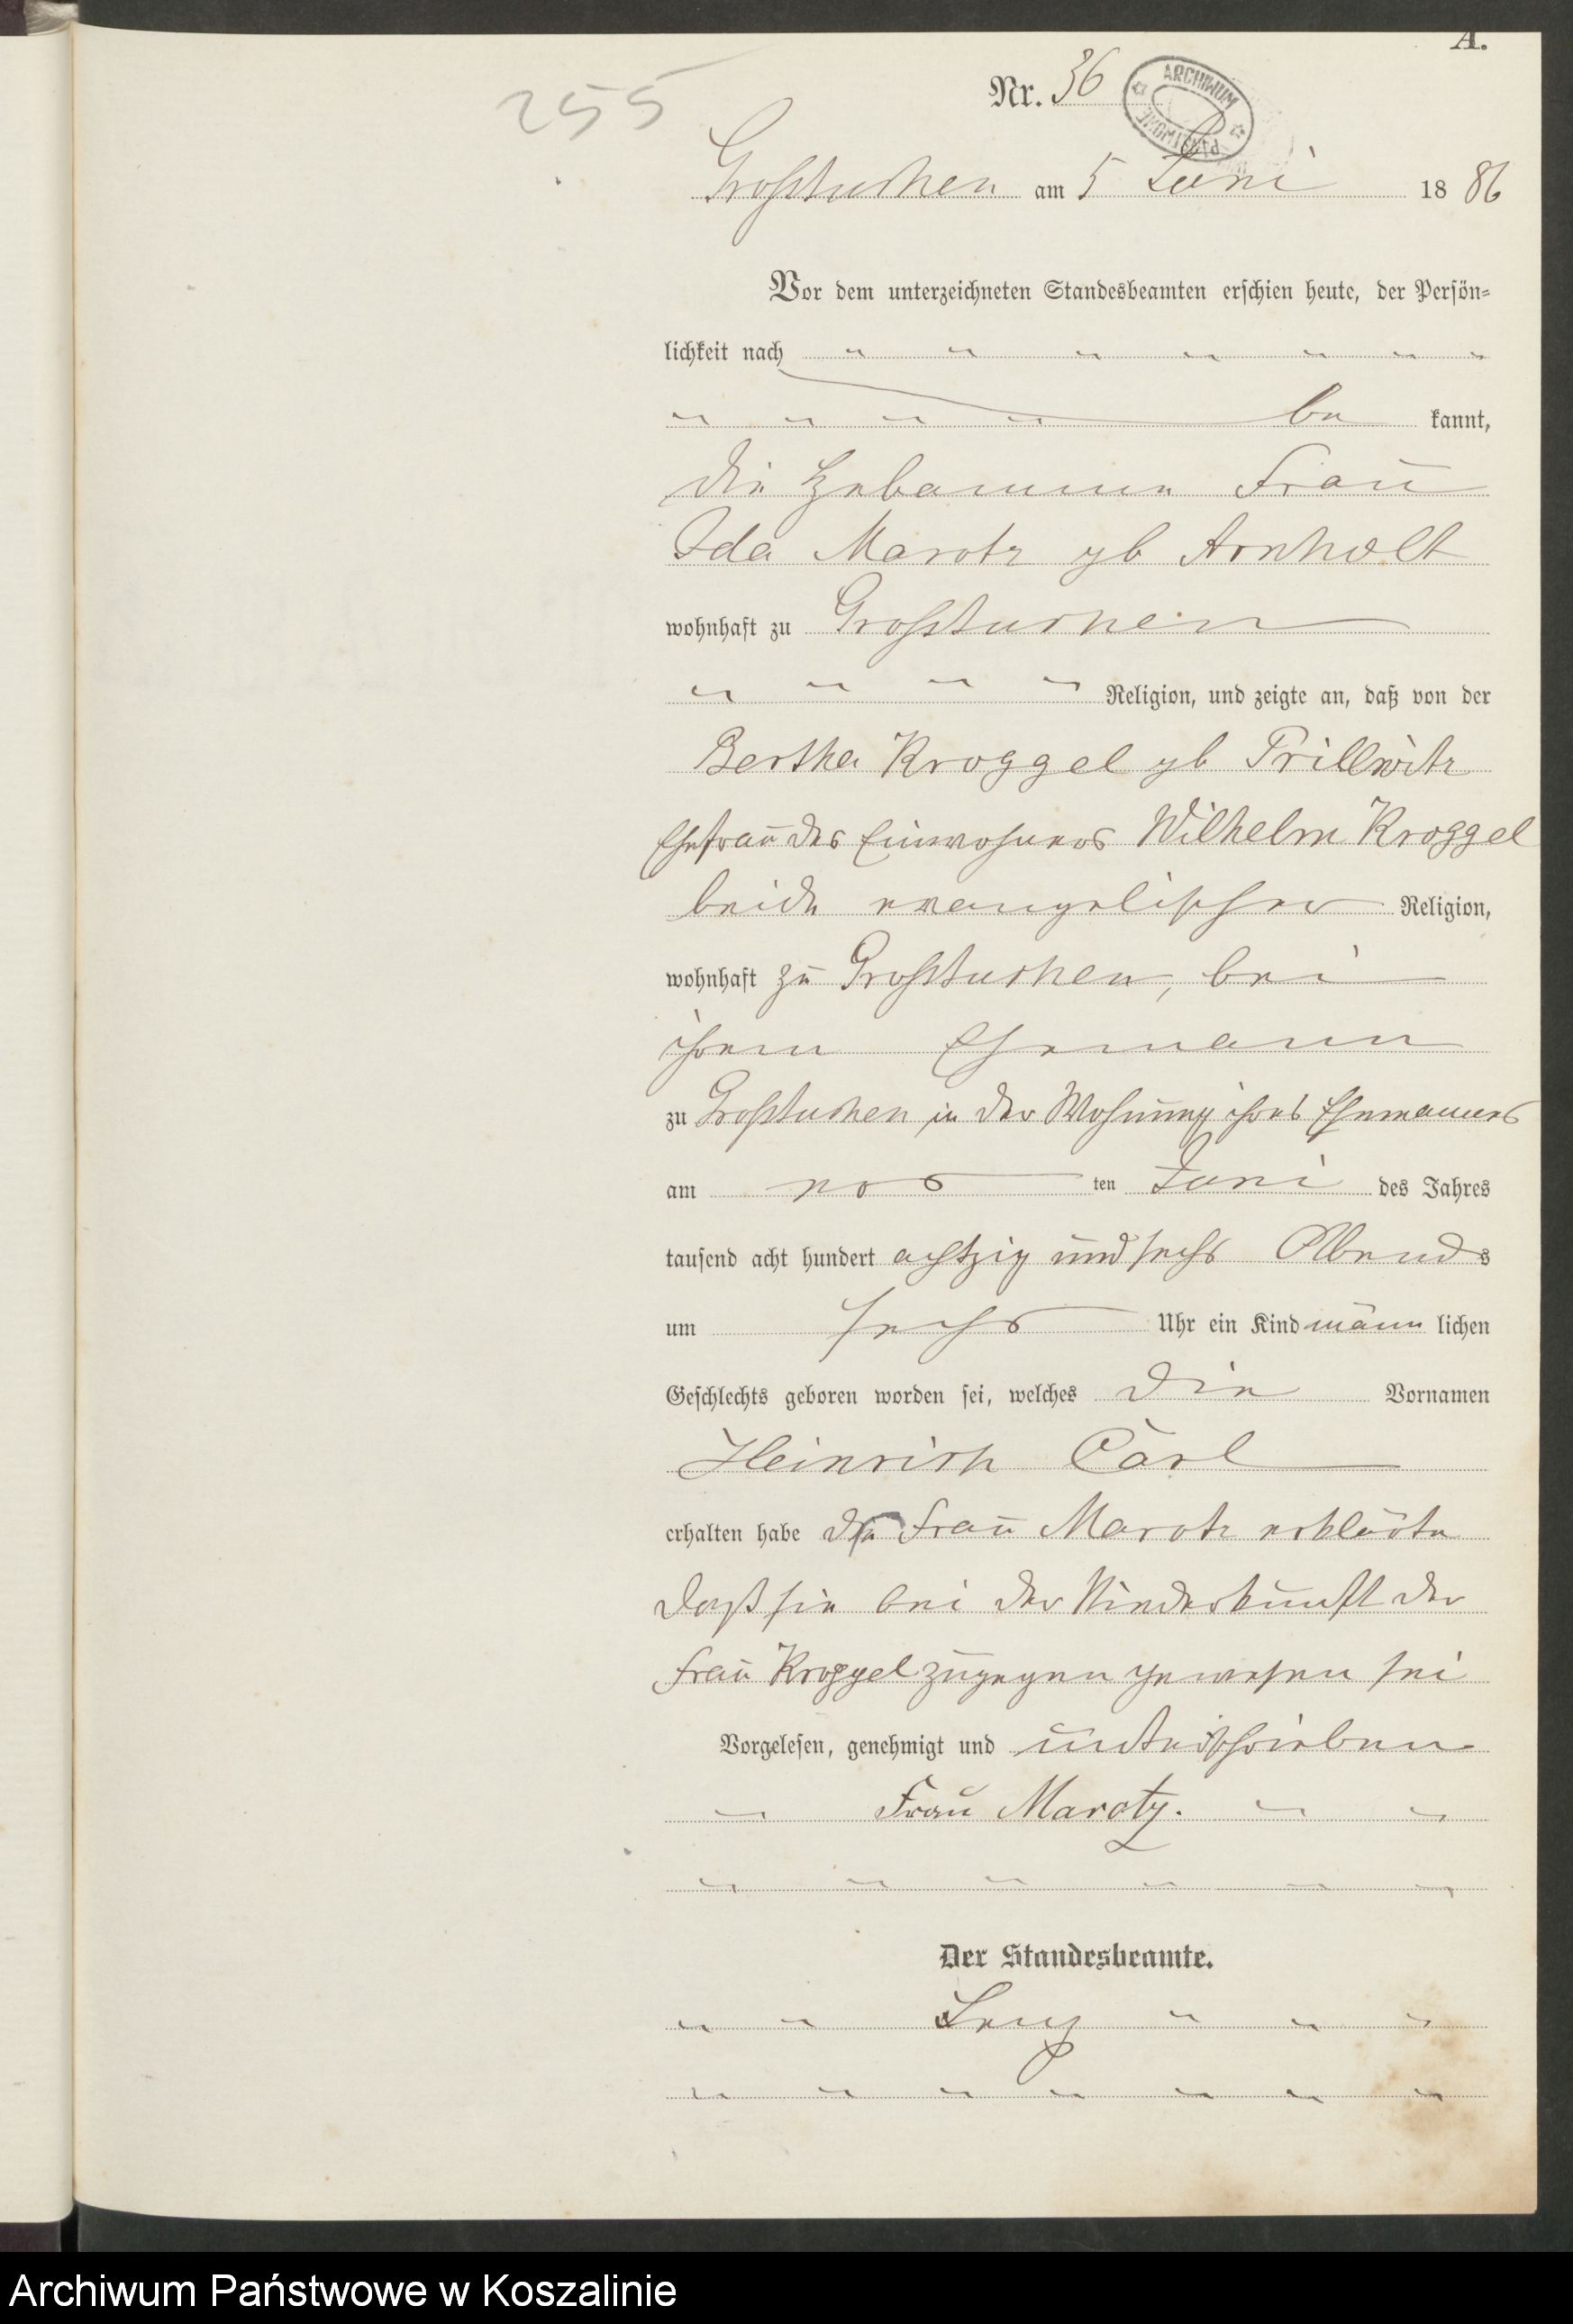 A.
255
Nr. 36
ARCHIWUM PAŃSTWOWE
Großtuchen am 5 Juni 1886
Vor dem unterzeichneten Standesbeamten erschien heute, der Persön-
lichkeit nach
be kannt,
die Hebamme Frau
Ida Marotz gb Arnholt
wohnhaft zu Großtuchen
Religion, und zeigte an, daß von der
Bertha Kroggel gb Prillwitz
Ehefrau des Einwohners Wilhelm Kroggel
beide evangelischer Religion,
wohnhaft zu Großtuchen, bei
ihrem Ehemann
zu Großtuchen in der Wohnung ihres Ehemannes
am ten Juni des Jahres
tausend acht hundert achtzig und sechs Abends
um sechs Uhr ein Kind männ lichen
Geschlechts geboren worden sei, welches die Vornamen
Heinrich Carl
erhalten habe die Frau Marotz erklärte
daß sie bei der Niederkunft der
Frau Kroggel zugegen gewesen sei
Vorgelesen, genehmigt und unterschrieben
Frau Marotz.
Der Standesbeamte.
Archiwum Państwowe w Koszalinie